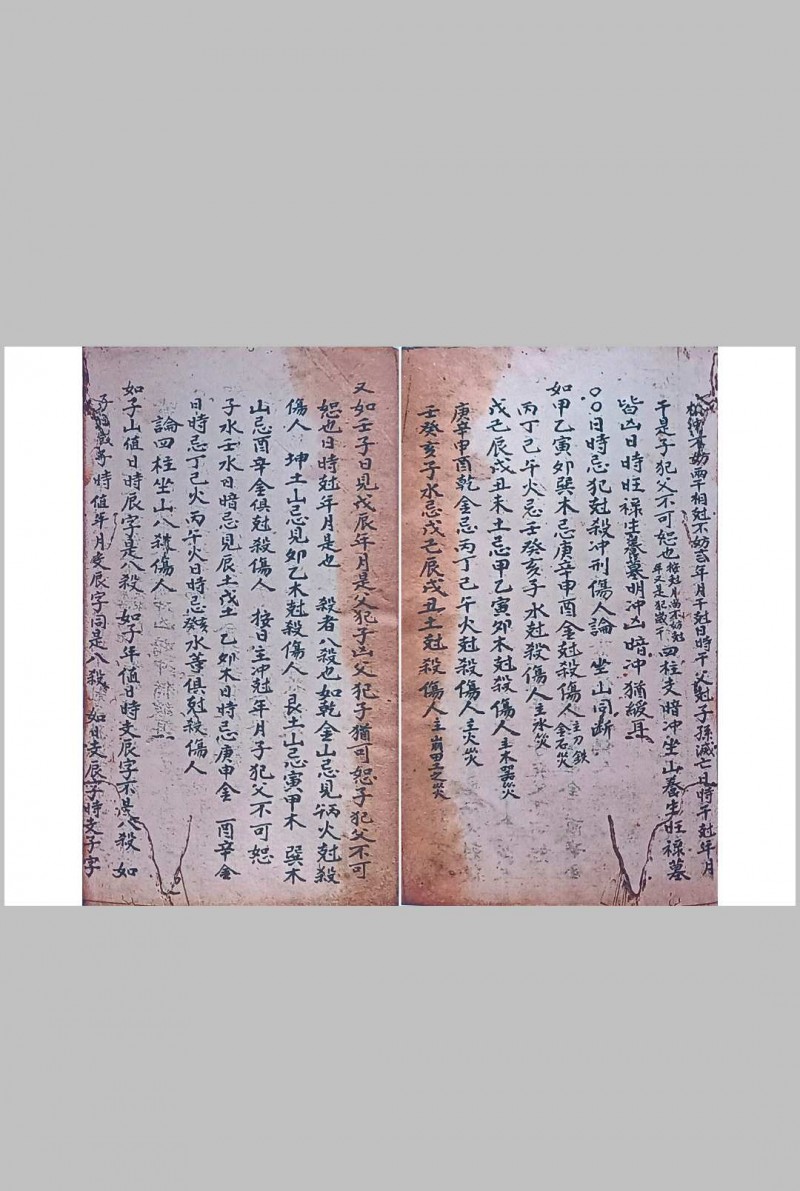 不妨兩干相尅不妨年月干尅日時干父尅子孫滅亡日時干尅年月
干是子犯父不可恕也 四柱支暗冲坐山養生旺祿墓
皆凶日時旺祿生養墓明冲凶暗冲猶緩耳
〇〇日時忌犯尅殺冲刑傷人論 坐山同断
如甲乙寅卯巽木忌庚辛申酉金尅殺傷人主刀鉄金石災
丙丁己午火忌壬癸亥子水尅殺傷人主水災
戊己辰戌丑未土忌甲乙寅卯木尅殺傷人主木器災
庚辛申酉乾金忌丙丁己午火尅殺傷人主火災
壬癸亥子水忌戊己辰戌丑土尅殺傷人主崩之災
又如壬子日見戊辰年月是父犯子凶父犯子猶可恕子犯父不可
恕也日時尅年月是也 殺者八殺也如乾金山忌見丙火尅殺
傷人 坤土山忌見卯乙木尅殺傷人 艮土山忌寅甲木 巽木
山忌酉辛金俱尅殺傷人 按日主冲尅年月子犯父不可恕
子水壬水日暗忌見辰土戊土 乙卯木日時忌庚申金 酉辛金
日時忌丁己火丙午火日時忌癸水等俱尅殺傷人
論四柱坐山八殺傷人
如子山值日時辰字是八殺 如子年值日時支辰字不是八殺 如
時值年月支辰字同是八殺 如日支辰字時支子字